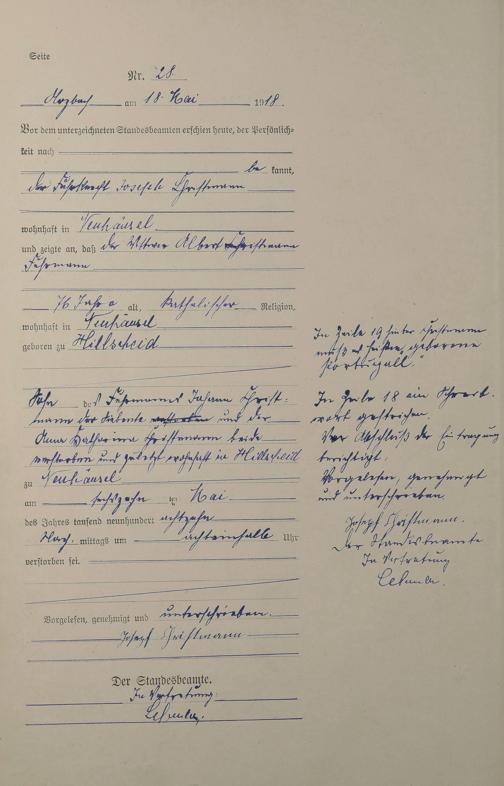 Seite
Nr. 28
am 18. Mai 1918.
Vor dem unterzeichneten Standesbeamten erschien heute, der Persönlich-
keit nach
be kannt,
der Joseph Christmann
wohnhaft in Neuhäusel
und zeigte an, daß der Albert Christmann
Fuhrmann
76 Jahre alt, katholischer Religion,
wohnhaft in Neuhäusel
geboren zu Hillscheid
Sohn des Fuhrmannes Johann Christ-
mann der und der
Anna Katharina Christmann beide
verstorben und zuletzt wohnhaft in Hillscheid
zu Neuhäusel
am sechszehn ten Mai
des Jahres tausend neunhundert achtzehn
Nach mittags um achteinhalb Uhr
verstorben sei.
Vorgelesen, genehmigt und unterschrieben.
Joseph Christmann
Der Standesbeamte.
In Vertretung
In Zeile 19 hinter Christmann
muß es heißen „geborene
In Zeile 18 ein Schreib-
wort gestrichen.
Vor Abschluß der Eintragung
berichtigt.
Vorgelesen, genehmigt
und unterschrieben.
Joseph Christmann.
Der Standesbeamte
In Vertretung